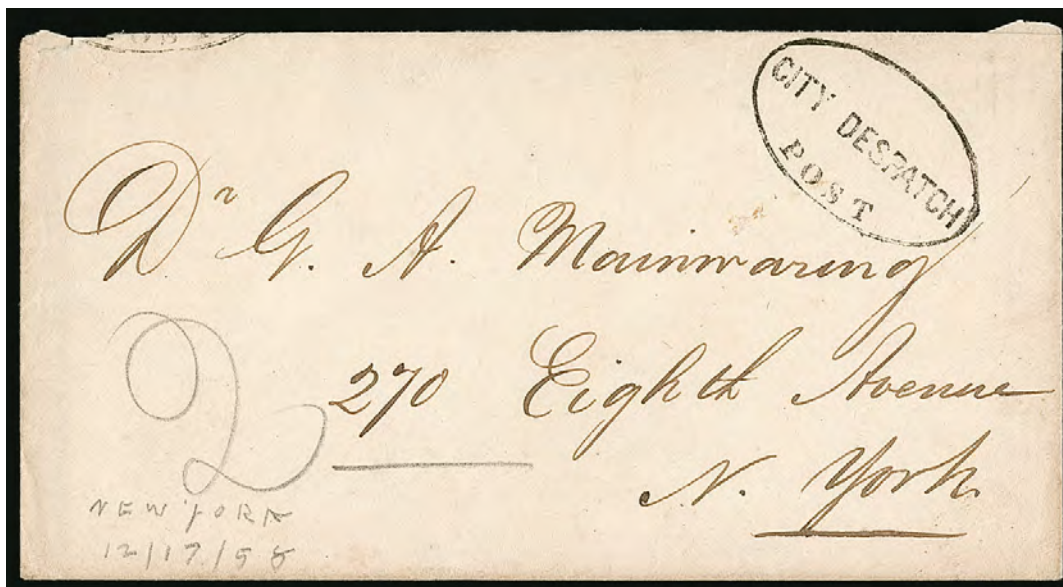 CITY DESPATCH
POST
Dr G. A. Mainwaring
2
270 Eighth Avenue
N. York
NEW YORK
12/17/58